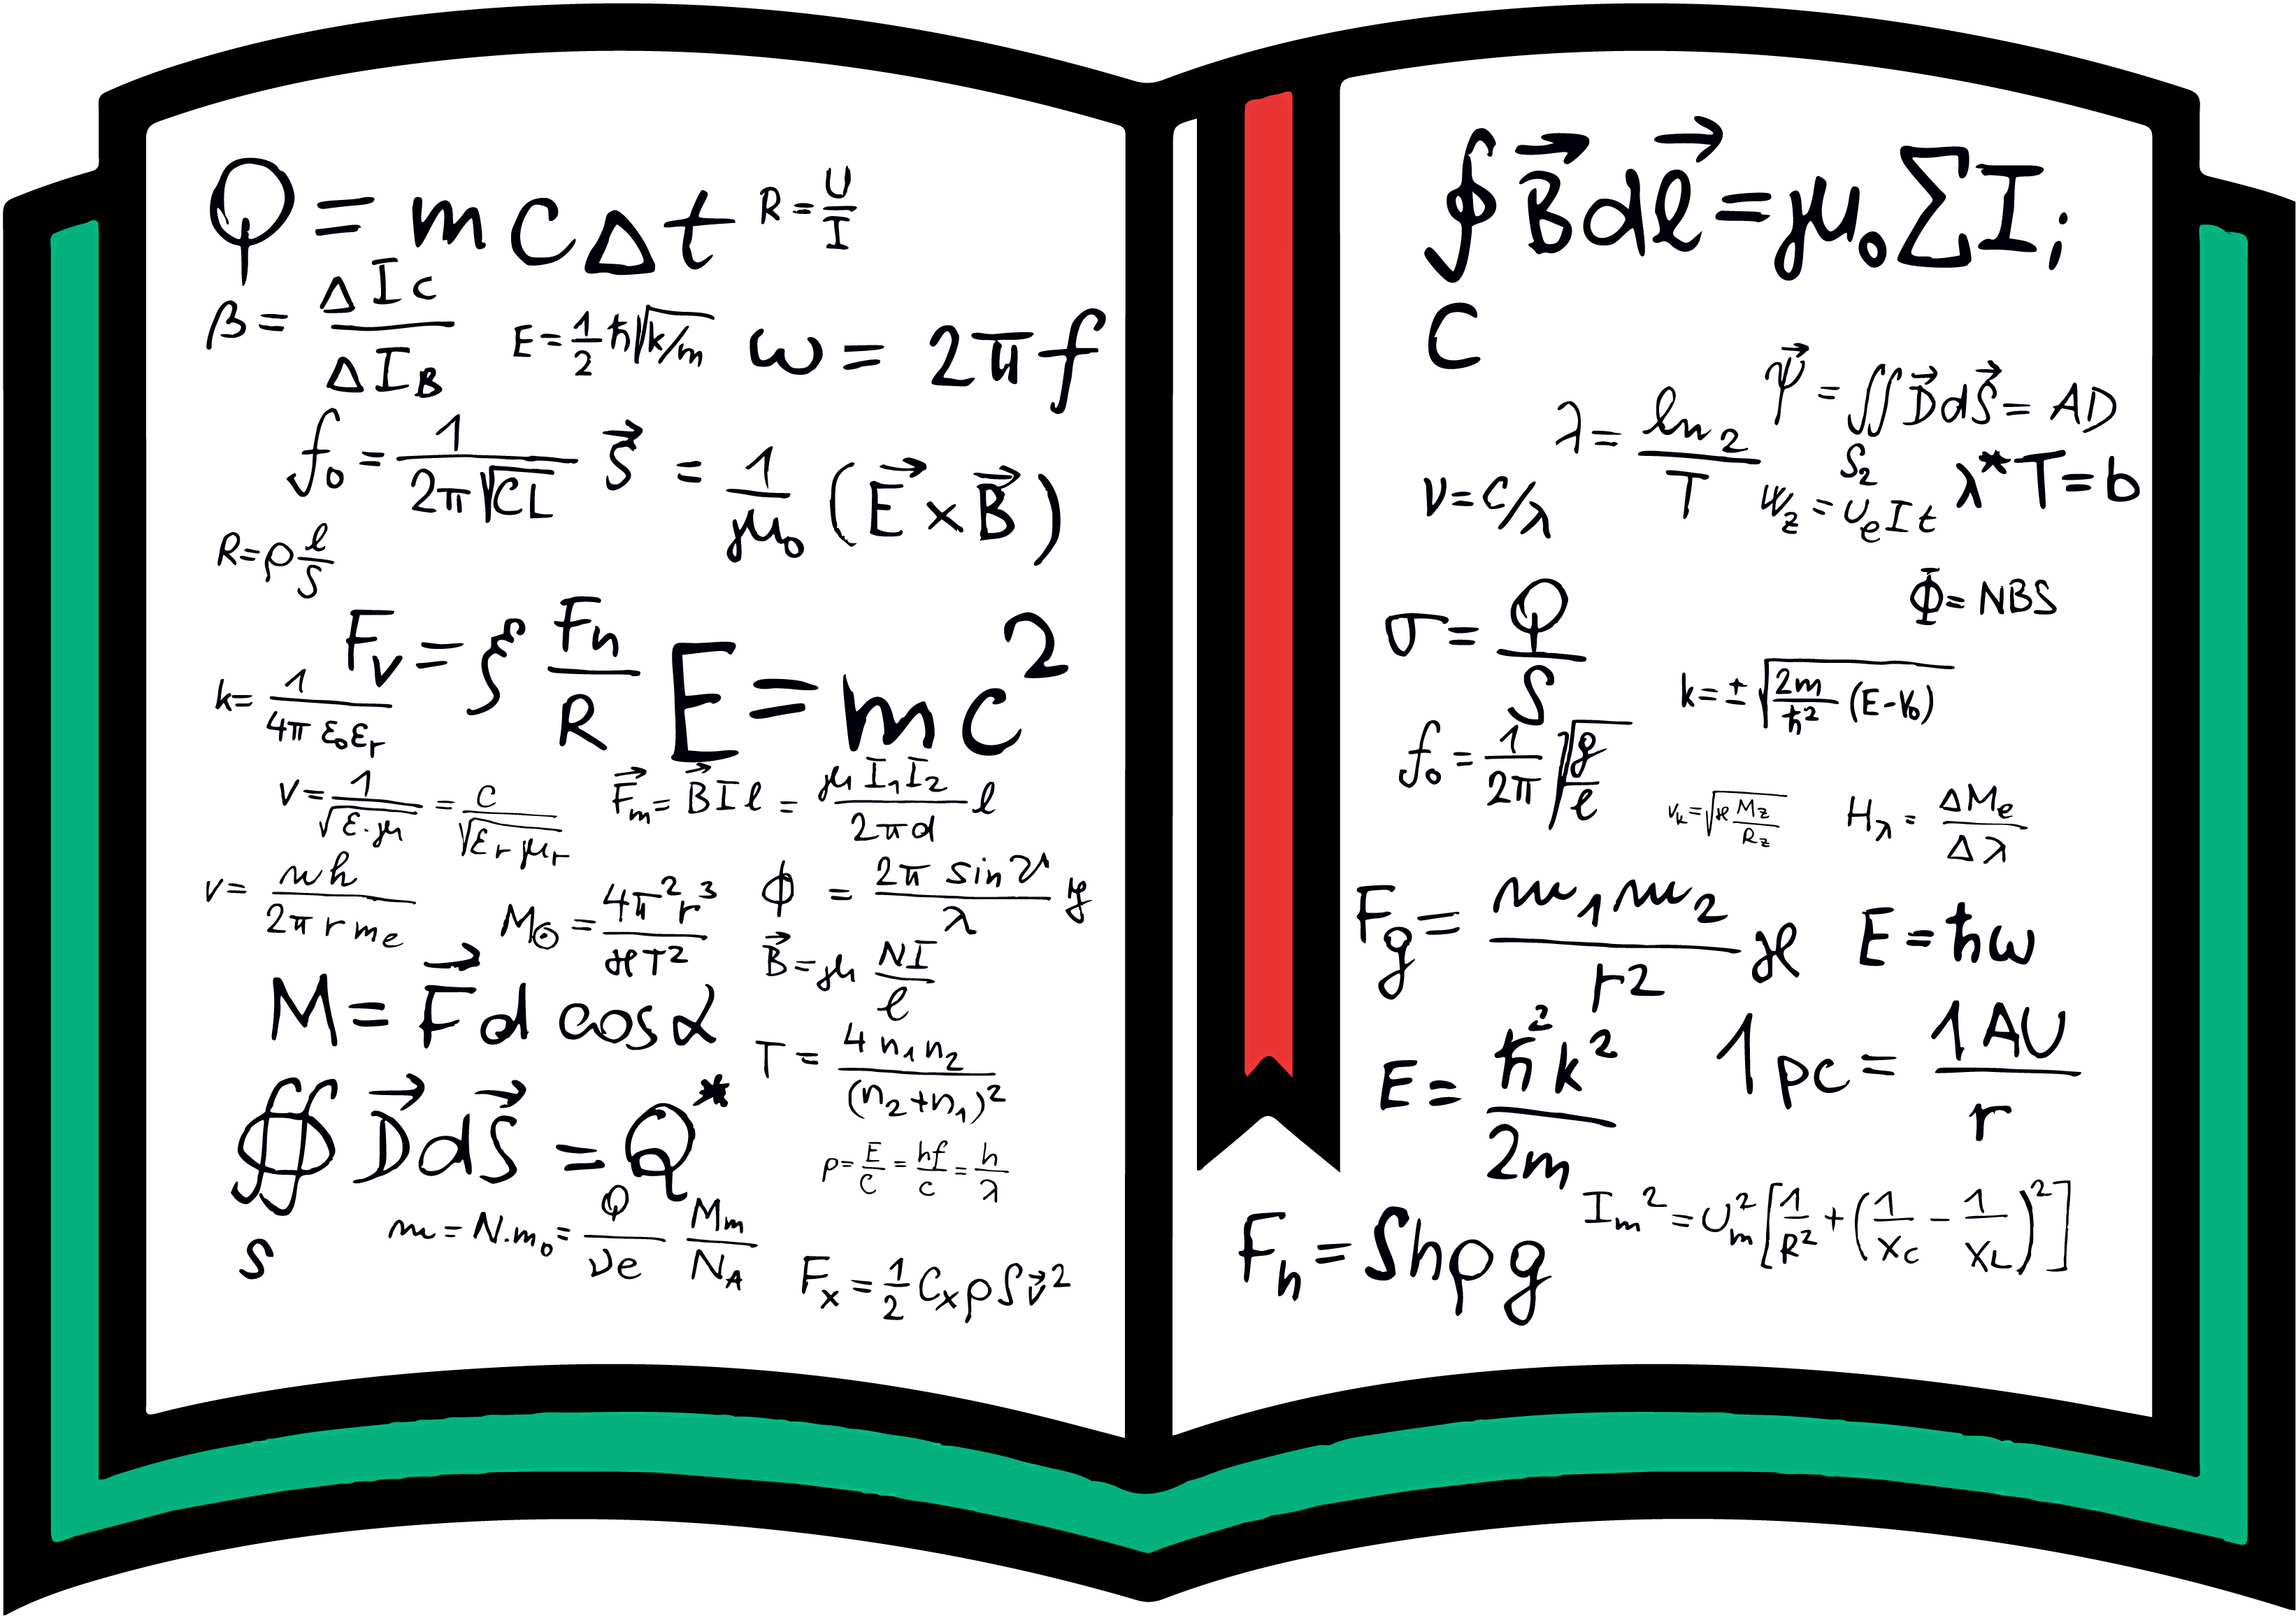 Q = mcΔt
R = U/I
β = ΔI_C / ΔI_B
E = 1/2 ħ√(k/m)
ω = 2πf
f₀ = 1 / (2π√(CL))
S⃗ = 1/μ₀ (E⃗ × B⃗)
R = ρ l/S
F_v = ∫ F_n / R
E = mc²
k = 1 / (4π ε₀ε_r)
v = 1/√(ε·μ) = c/√(ε_r μ_r)
F⃗_m = B⃗Iℓ = (μ I₁I₂ / 2πd) ℓ
v = nh / (2π r m_e)
M_⊙ = 4π²r³ / ϰT²
ϕ = (2π sin ϑ / λ) y
B⃗ = μ NI/ℓ
M = F⃗d cos α
T = 4 n₁n₂ / (n₂+n₁)²
∯ D⃗dS⃗ = Q*
S
p = E/c = hf/c = h/λ
m = N·m₀ = Q/νe M_m/N_A
F_x = 1/2 C_x ρSv⃗²
∮ B⃗dℓ⃗ = μ₀ΣI_i
C
ψ⃗ = ∬ D⃗dS⃗ = AD
S₂
λ = ln 2 / T
ν = c/λ
W_z = U_e I t
λ*T = b
Φ = NBS
σ = Q/S
k = ± √(2m/ħ² (E-V₀))
f₀ = 1/2π √(g/ℓ)
v_k = √(ϰ M_z/R_z)
H_λ = ΔM_e / Δλ
F_g = (m₁m₂ / r²) ϰ
E = ħω
E = ħ²k² / 2m
1pc = 1AU / r
I_m² = U_m² [1/R² + (1/X_C − 1/X_L)²]
F_h = Shρg